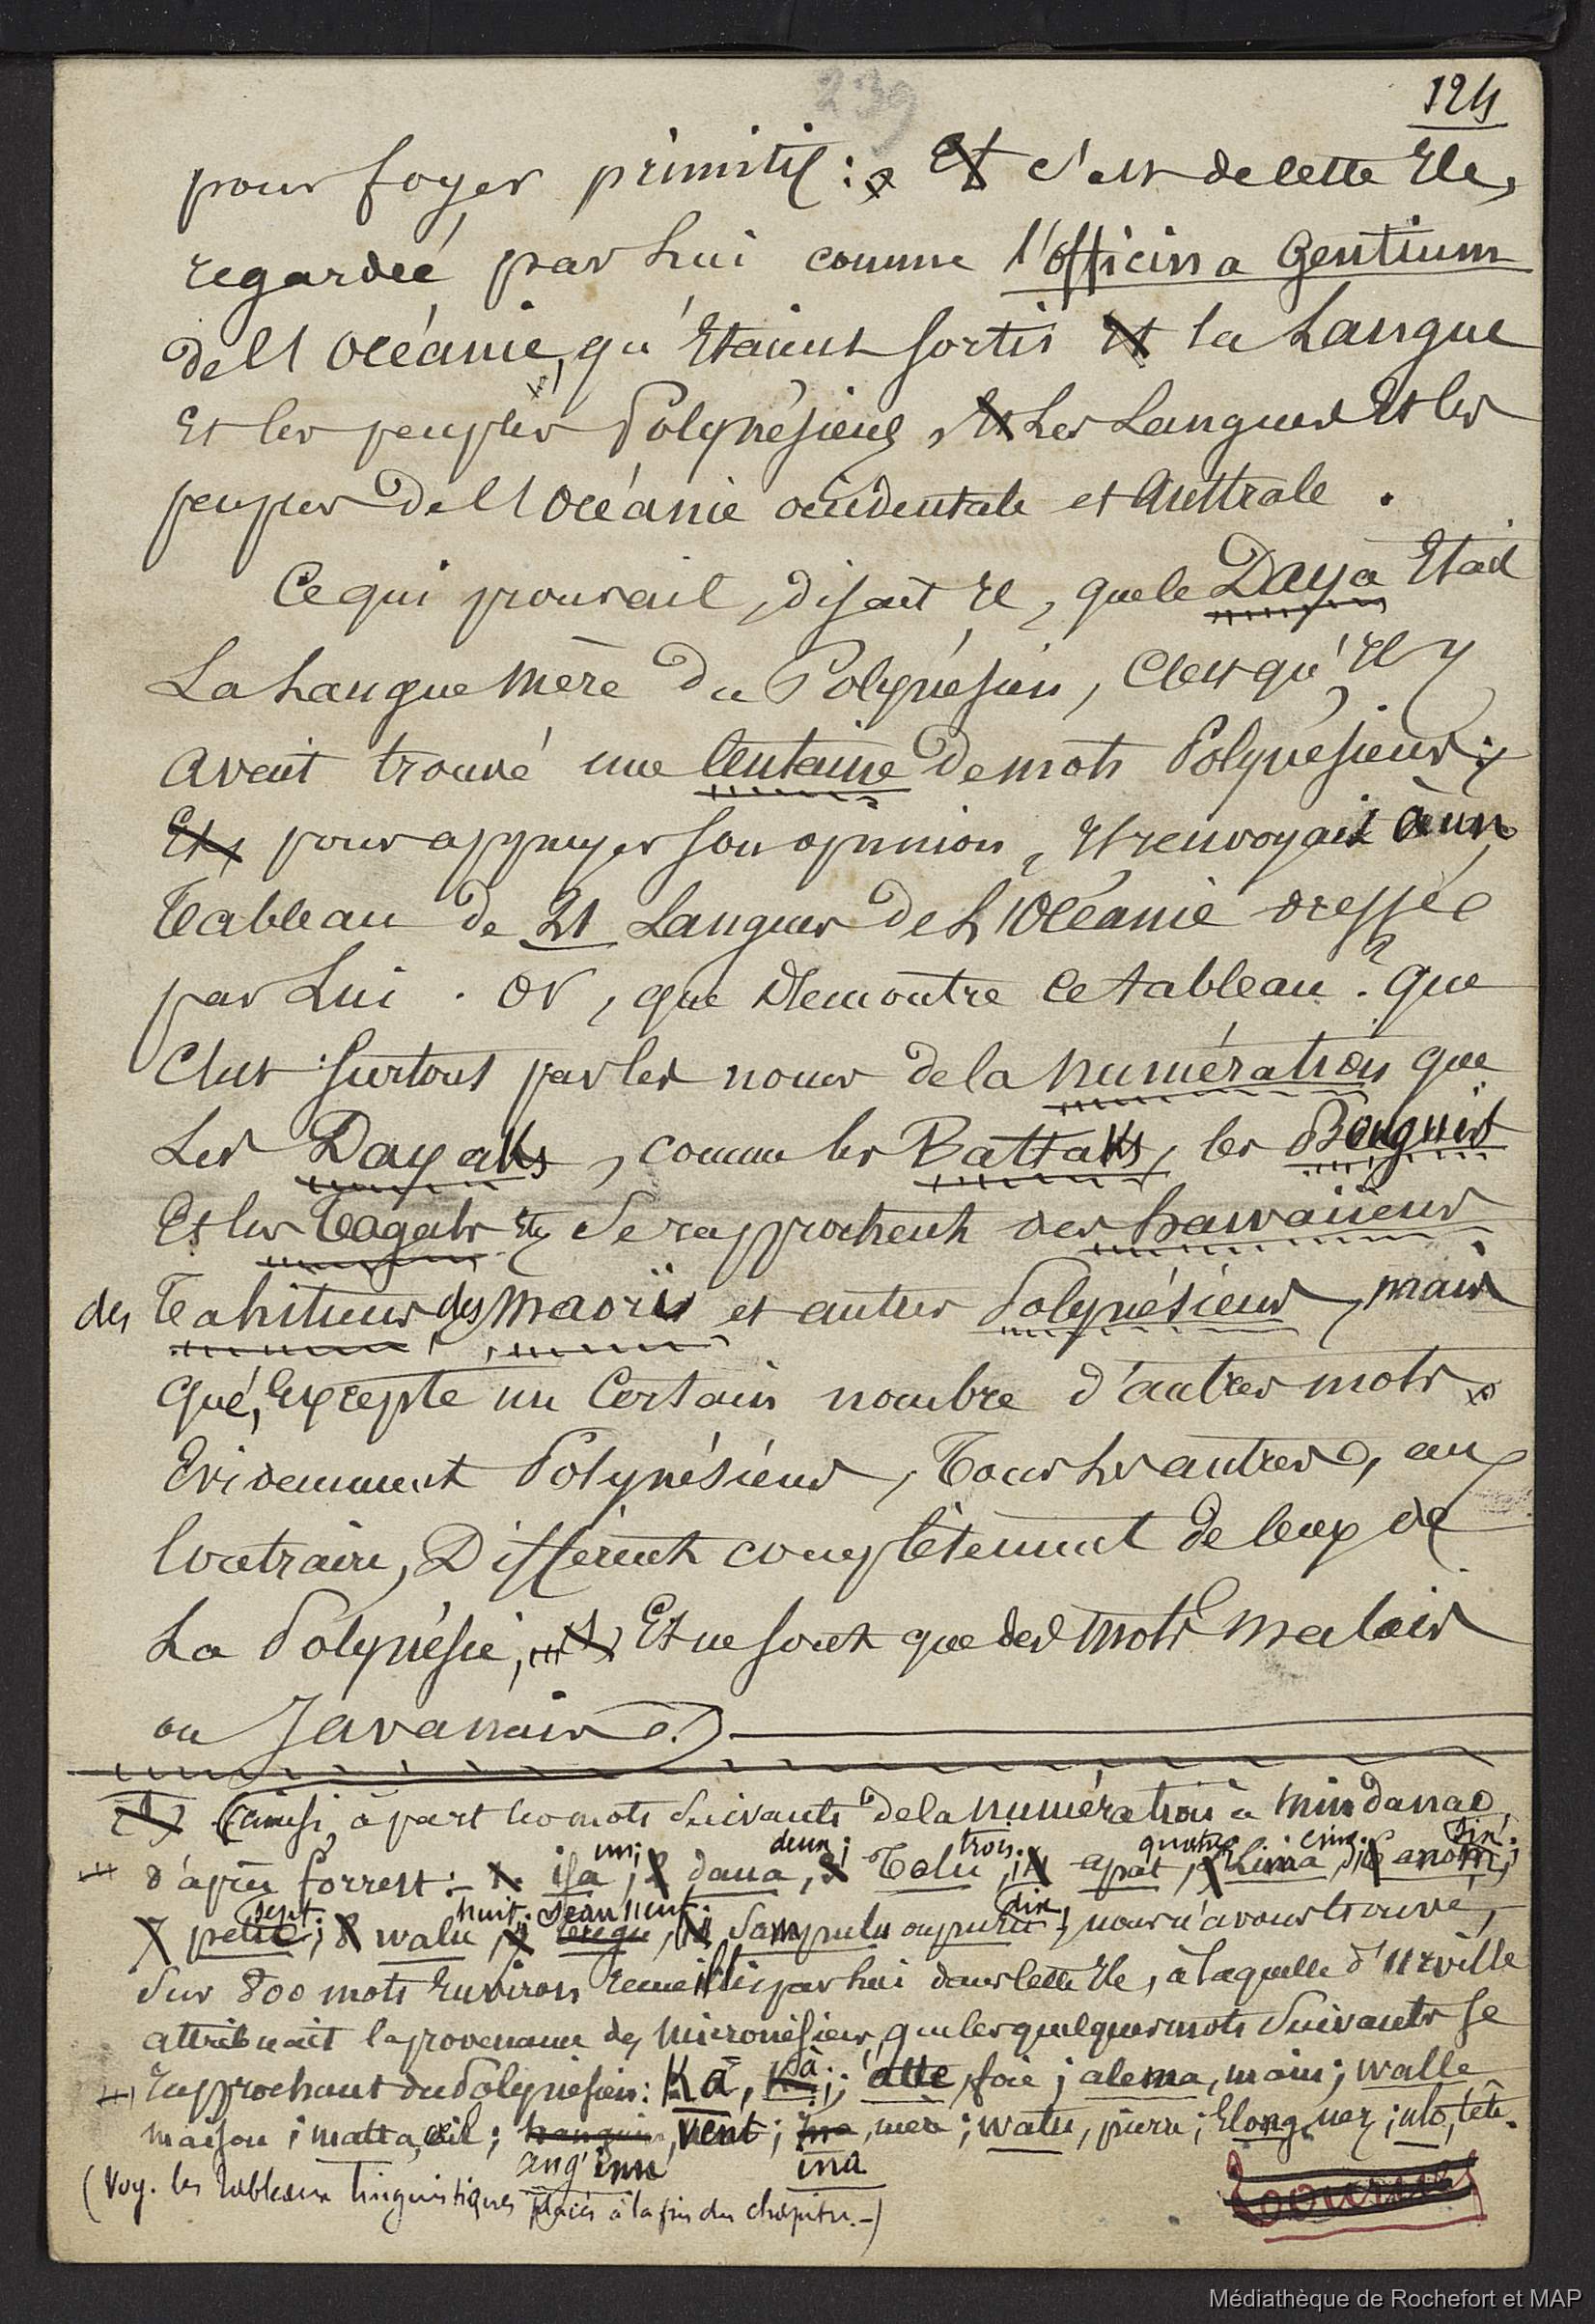 239
124
pour foyer primitif : Et c'est de cette Ile,
regardée par lui comme l'officina gentium
de l'Océanie, qu'étaient sortis et la Langue
et les peuples Polynésiens, et les Langues et les
peuples de l'Océanie occidentale et Australe.
Ce qui prouvait, disait il, que le Daya était
La Langue mère du Polynésien, c'est qu'il y
avait trouvé une Centaine de mots Polynésiens ;
Et, pour appuyer son opinion, il renvoyait à un
Tableau de 21 Langues de l'Océanie dressé
par Lui. Or, que démontre ce tableau ? que
c'est surtout par les noms de la numération que
Les Dayaks, comme les Battaks, les Bouguis
Et les Tagals etc, se rapprochent des hawaiiens
des Tahitiens des Maoris et autres Polynésiens, mais
que, excepté un certain nombre d'autres mots
Evidemment Polynésiens, Tous les autres, au
Contraire, Diffèrent complètement de ceux de
La Polynésie, Et ne sont que des mots malais
ou Javanais (1)
(1) (ainsi, à part les mots suivants de la numération à Mindanao,
un; deux; trois; quatre; cinq; six;
d'après forrest : - 1. isa, 2 daua, 3 Talu, 4 apat, 5 Lima, 6 anom;
sept; huit; neuf; dix;
7 petic; 8 walu, seaow, 10 Sampulu ou puru; nous n'avons trouvé,
Sur 800 mots Environ recueillis par lui dans cette Ile, à laquelle d'Urville
attribuait la provenance des Micronésiens, que les quelques mots suivants se
Rapprochant du Polynésien : Ka, à; atte, foie; alema, main; walle
maison; matta, œil; vent; mère; watu, pierre; Elong, nez; ulo, tête.
ang'inn ina
(Voy. les Tableaux Linguistiques placés à la fin du chapitre. -)
Médiathèque de Rochefort et MAP